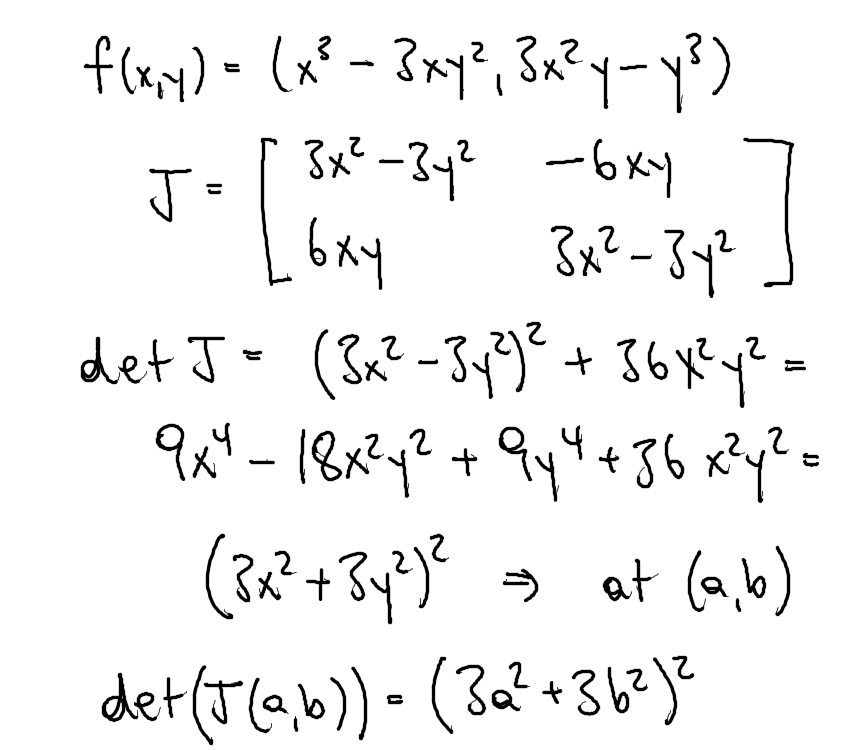 f(x,y) = (x³ - 3xy², 3x²y - y³)
J = [ 3x² - 3y² -6xy
6xy 3x² - 3y² ]
det J = (3x² - 3y²)² + 36x²y² =
9x⁴ - 18x²y² + 9y⁴ + 36 x²y² =
(3x² + 3y²)² ⇒ at (a,b)
det(J(a,b)) = (3a² + 3b²)²